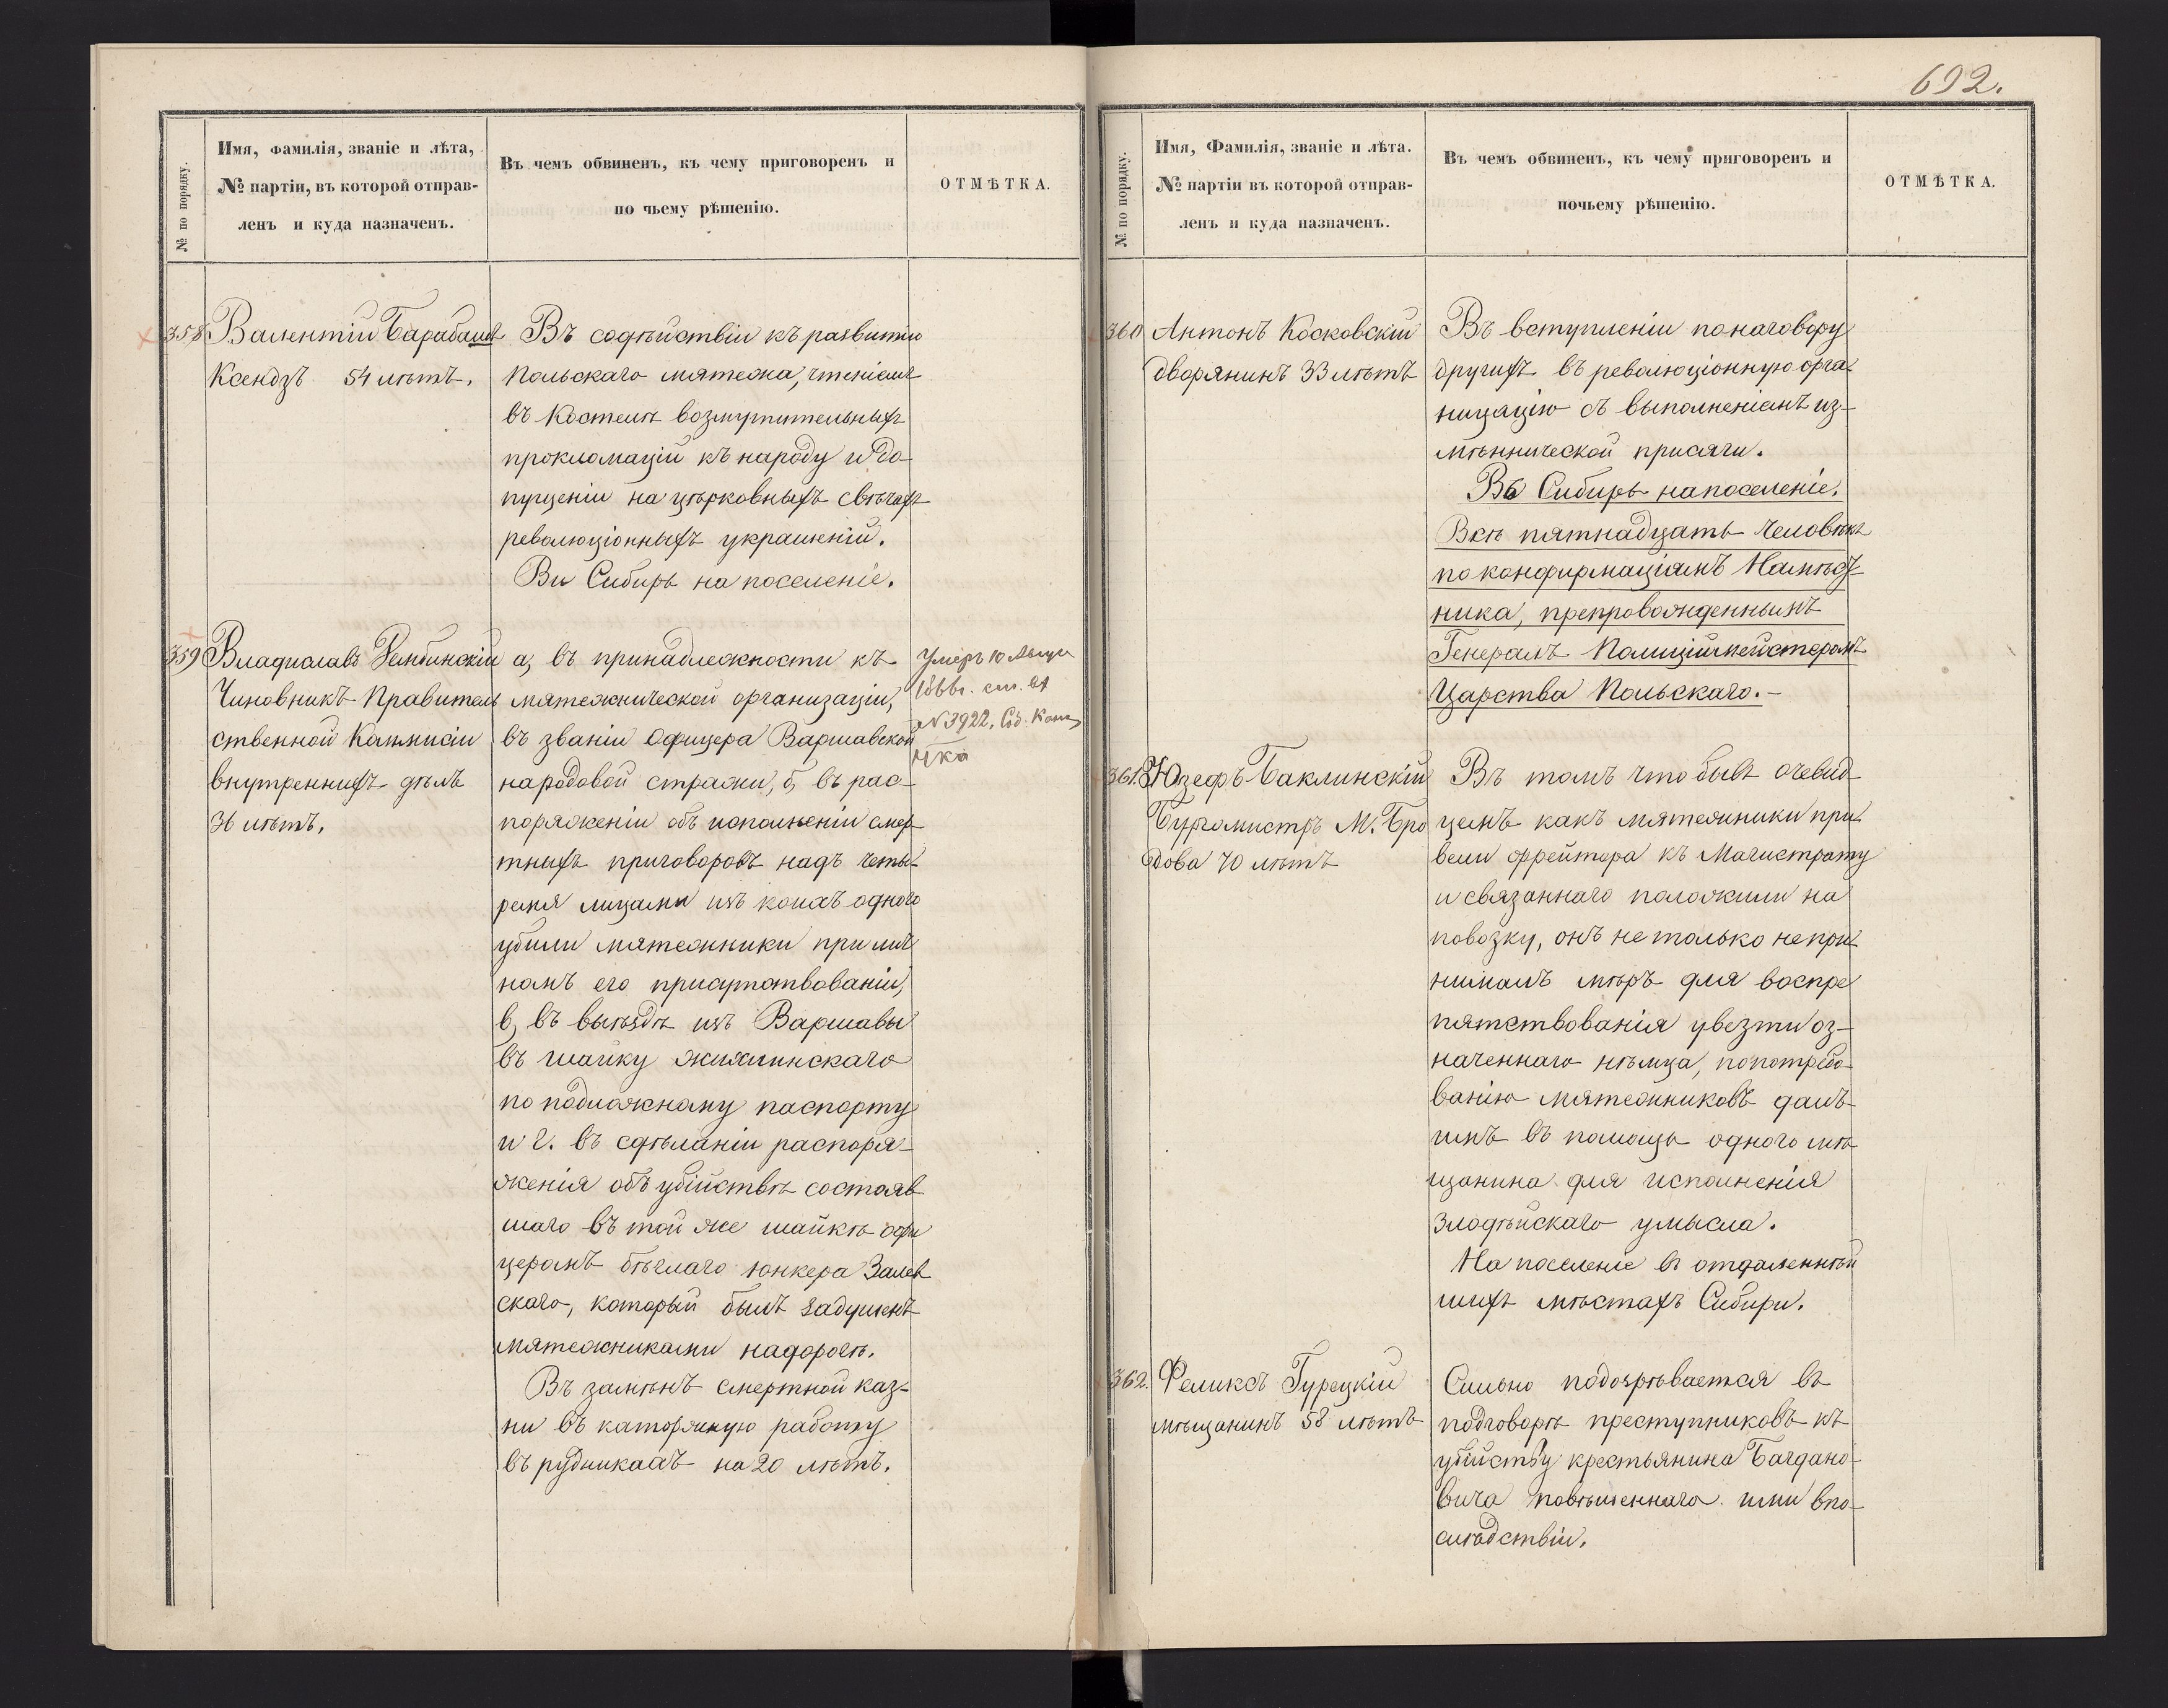 692.
№ по порядку.
Имя, фамилія, званіе и лѣта,
№ партіи, въ которой отправ-
ленъ и куда назначенъ.
Въ чемъ обвиненъ, къ чему приговоренъ и
по чьему рѣшенію.
ОТМѢТКА.
358 Валентій Барабашъ
Ксендзъ 54 лѣтъ.
Въ содѣйствіи къ развитію
Польскаго мятежа, чтеніемъ
въ Костелѣ возмутительныхъ
прокламацій къ народу и до-
пущеніи на церковныхъ свѣчахъ
революціонныхъ украшеній.
Въ Сибирь на поселеніе.
359 Владиславъ Рембинскій
Чиновникъ Правитель
ственной Коммисіи
внутреннихъ дѣлъ
36 лѣтъ.
а, въ принадлежности къ
мятежнической организаціи,
въ званіи Офицера Варшавской
народовой стражи, б, въ рас-
поряженіи объ исполненіи смер-
тныхъ приговоровъ надъ четы-
ремя лицами изъ коихъ одного
убили мятежники при лич
номъ его присутствованіи,
в, въ выѣздѣ изъ Варшавы
въ шайку Жихлинскаго
по подложному паспорту
и г. въ сдѣланіи распоря-
женія объ убійствѣ состояв
шаго въ той же шайкѣ офи
церомъ бѣглаго юнкера Залев
скаго, который былъ задушенъ
мятежниками на дорогѣ.
Въ замѣнъ смертной каз-
ни въ каторжную работу
въ рудникахъ на 20 лѣтъ.
Умеръ 10
№ 3922,
№ по порядку.
Имя, Фамилія, званіе и лѣта.
№ партіи въ которой отправ-
ленъ и куда назначенъ.
Въ чемъ обвиненъ, къ чему приговоренъ и
почьему рѣшенію.
ОТМѢТКА.
360 Антонъ Косковскій
дворянинъ 33 лѣтъ
Въ вступленіи по наговору
другихъ въ революціонную орга-
низацію съ выполненіемъ из-
мѣннической присяги.
Въ Сибирь на поселеніе.
Всѣ пятнадцать человѣкъ
по конфирмаціямъ Намѣст-
ника, препровожденнымъ
Генералъ Полиціймейстеромъ
Царства Польскаго.-
361. Юзефъ Баклинскій
Бургомистръ М. Бро
дова 70 лѣтъ
Въ томъ что бывъ очевид
цемъ какъ мятежники при
вели фрейтера къ Магистрату
и связаннаго положили на
повозку, онъ не только не при
нималъ мѣръ для воспре
пятствованія увезти оз-
наченнаго нѣмца, по потребо
ванію мятежниковъ далъ
имъ въ помощь одного мѣ
щанина для исполненія
злодѣйскаго умысла.
На поселеніе въ отдаленнѣй
шихъ мѣстахъ Сибири.
362. Феликсъ Гурецкій
мѣщанинъ 58 лѣтъ
Сильно подозрѣвается въ
подговорѣ преступниковъ къ
убійству крестьянина Багдано-
вича повѣшеннаго ими впо-
слѣдствіи.